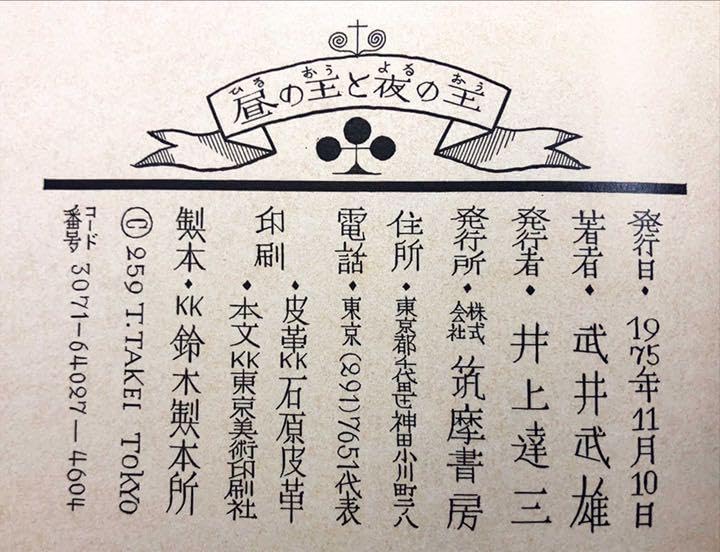 昼の王と夜の王
ひる おう よる おう
発行日・1975年11月10日
著者・武井武雄
発行者・井上達三
発行所・株式会社 筑摩書房
住所・東京都千代田区神田小川町二ノ八
電話・東京(291)7651代表
印刷・皮革KK石原皮革
・本文KK東京美術印刷社
製本・KK鈴木製本所
© 259 T.TAKEI TOKYO
コード番号 3071-64027-4604